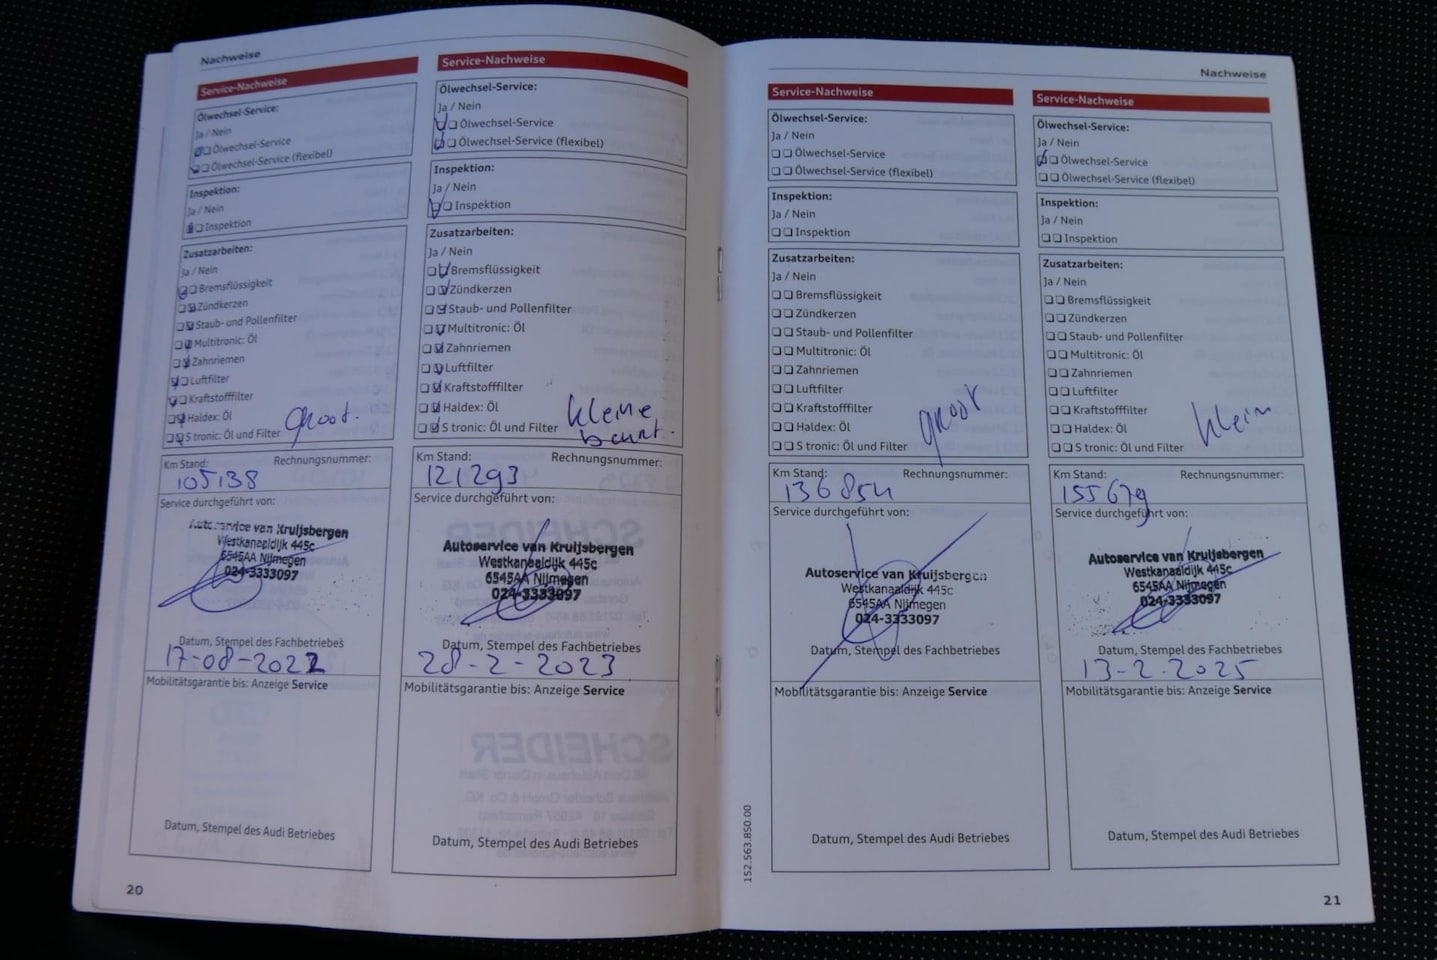 Nachweise
Service-Nachweise
Ölwechsel-Service:
Ja / Nein
Ölwechsel-Service
Ölwechsel-Service (flexibel)
Inspektion:
Ja / Nein
Inspektion
Zusatzarbeiten:
Ja / Nein
Bremsflüssigkeit
Zündkerzen
Staub- und Pollenfilter
Multitronic: Öl
Zahnriemen
Luftfilter
Kraftstofffilter
Haldex: Öl
S tronic: Öl und Filter
groot.
Km Stand: Rechnungsnummer:
105138
Service durchgeführt von:
Autoservice van Kruijsbergen
Westkanaaldijk 445c
6545AA Nijmegen
024-3333097
Datum, Stempel des Fachbetriebes
17-08-2022
Mobilitätsgarantie bis: Anzeige Service
Datum, Stempel des Audi Betriebes
20
Service-Nachweise
Ölwechsel-Service:
Ja / Nein
Ölwechsel-Service
Ölwechsel-Service (flexibel)
Inspektion:
Ja / Nein
Inspektion
Zusatzarbeiten:
Ja / Nein
Bremsflüssigkeit
Zündkerzen
Staub- und Pollenfilter
Multitronic: Öl
Zahnriemen
Luftfilter
Kraftstofffilter
Haldex: Öl
S tronic: Öl und Filter
kleine
beurt.
Km Stand: Rechnungsnummer:
121293
Service durchgeführt von:
Autoservice van Kruijsbergen
Westkanaaldijk 445c
6545AA Nijmegen
024-3333097
Datum, Stempel des Fachbetriebes
28-2-2023
Mobilitätsgarantie bis: Anzeige Service
Datum, Stempel des Audi Betriebes
Nachweise
Service-Nachweise
Ölwechsel-Service:
Ja / Nein
Ölwechsel-Service
Ölwechsel-Service (flexibel)
Inspektion:
Ja / Nein
Inspektion
Zusatzarbeiten:
Ja / Nein
Bremsflüssigkeit
Zündkerzen
Staub- und Pollenfilter
Multitronic: Öl
Zahnriemen
Luftfilter
Kraftstofffilter
Haldex: Öl
S tronic: Öl und Filter
groot
Km Stand: Rechnungsnummer:
136854
Service durchgeführt von:
Autoservice van Kruijsbergen
Westkanaaldijk 445c
6545AA Nijmegen
024-3333097
Datum, Stempel des Fachbetriebes
Mobilitätsgarantie bis: Anzeige Service
Datum, Stempel des Audi Betriebes
152.563.850.00
Service-Nachweise
Ölwechsel-Service:
Ja / Nein
Ölwechsel-Service
Ölwechsel-Service (flexibel)
Inspektion:
Ja / Nein
Inspektion
Zusatzarbeiten:
Ja / Nein
Bremsflüssigkeit
Zündkerzen
Staub- und Pollenfilter
Multitronic: Öl
Zahnriemen
Luftfilter
Kraftstofffilter
Haldex: Öl
S tronic: Öl und Filter
klein
Km Stand: Rechnungsnummer:
155679
Service durchgeführt von:
Autoservice van Kruijsbergen
Westkanaaldijk 445c
6545AA Nijmegen
024-3333097
Datum, Stempel des Fachbetriebes
13-2-2025
Mobilitätsgarantie bis: Anzeige Service
Datum, Stempel des Audi Betriebes
21